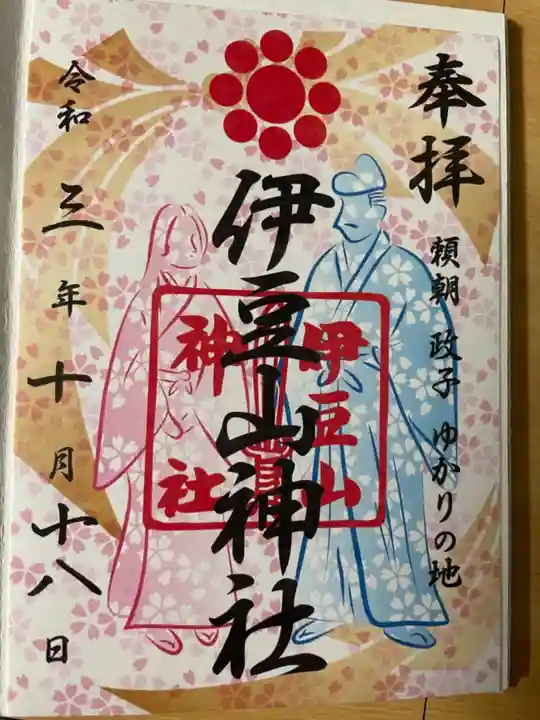 奉拝
頼朝 政子 ゆかりの地
伊豆山神社
伊豆山
神社
令和三年十月十八日